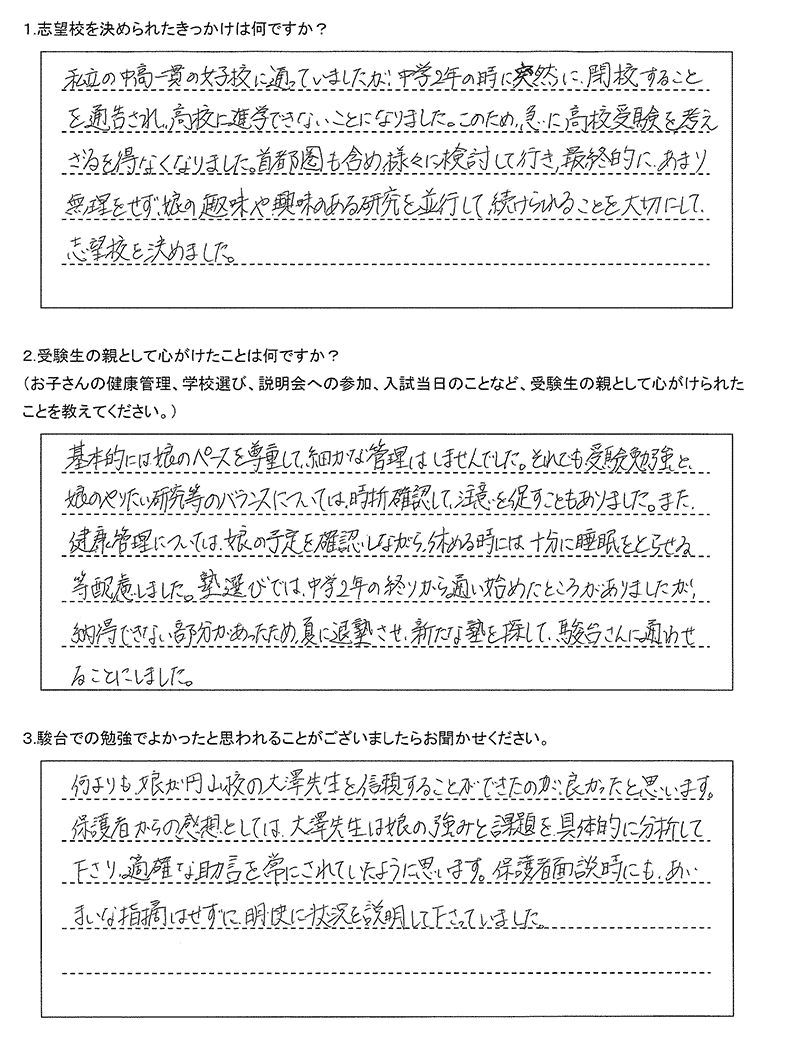 1.志望校を決められたきっかけは何ですか？
私立の中高一貫の女子校に通っていましたが、中学2年の時に突然に、閉校すること
を通告され、高校に進学できないことになりました。このため、急に高校受験を考え
ざるを得なくなりました。首都圏も含め、様々に検討して行き、最終的に、あまり
無理をせず、娘の趣味や興味のある研究を並行して、続けられることを大切にして、
志望校を決めました。
2.受験生の親として心がけたことは何ですか？
（お子さんの健康管理、学校選び、説明会への参加、入試当日のことなど、受験生の親として心がけられた
ことを教えてください。）
基本的には娘のペースを尊重して、細かな管理はしませんでした。それでも、受験勉強と、
娘のやりたい研究等のバランスについては、時折確認して、注意を促すこともありました。また、
健康管理については、娘の予定を確認しながら、休める時には十分に睡眠をとらせる
等配慮しました。塾選びでは、中学2年の終りから通い始めたところがありましたが、
納得できない部分があったため、夏に退塾させ、新たな塾を探して、駿台さんに通わせ
ることにしました。
3.駿台での勉強でよかったと思われることがございましたらお聞かせください。
何よりも、娘が円山校の大澤先生を信頼することができたのが良かったと思います。
保護者からの感想としては、大澤先生は娘の、強みと課題を、具体的に分析して
下さり、適確な助言を常にされていたように思います。保護者面談時にも、あい
まいな指摘はせずに、明快に状況を説明して下さっていました。